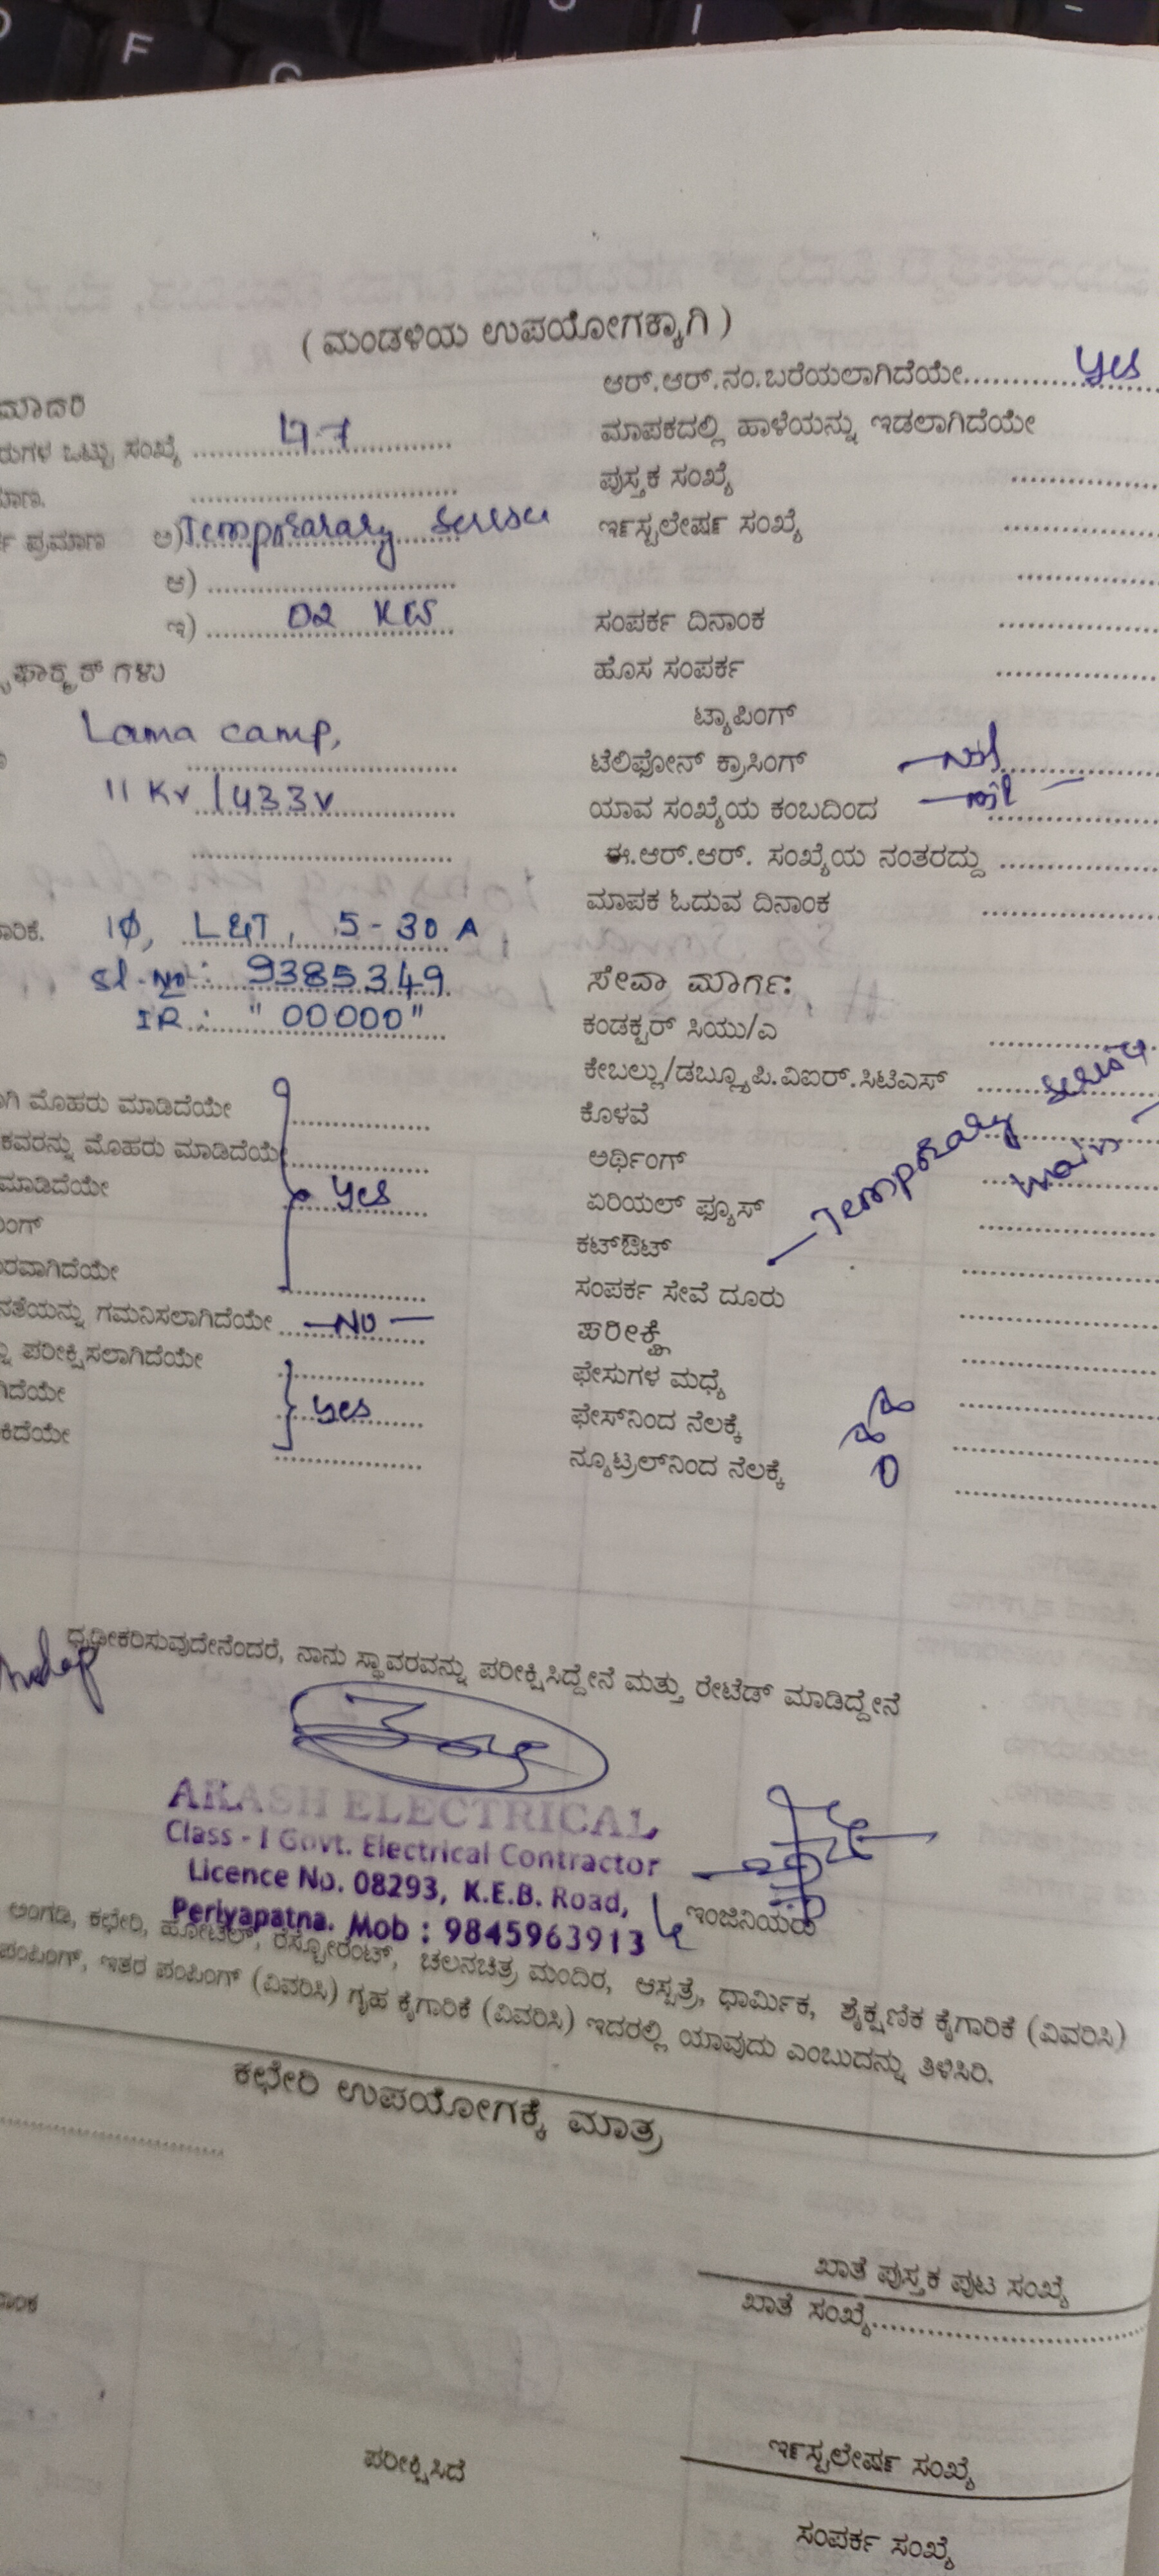 ( ಮಂಡಳಿಯ ಉಪಯೋಗಕ್ಕಾಗಿ )
ಮಾದರಿ
ರುಗಳ ಒಟ್ಟು ಸಂಖ್ಯೆ ..........
ಪ್ರಮಾಣ ಅ) Temporarary
ಆ) ..........
ಇ) 02 KW
ಗಳು
Lama camp,
11 Kv / 433v
1Ø, L&T, 5-30 A
Sl. No: 9385349
IR : "00000"
ಗಿ ಮೊಹರು ಮಾಡಿದೆಯೇ
ಕವರನ್ನು ಮೊಹರು ಮಾಡಿದೆಯೇ
ಮಾಡಿದೆಯೇ Yes
ಂಗ್
ರವಾಗಿದೆಯೇ
ನತೆಯನ್ನು ಗಮನಿಸಲಾಗಿದೆಯೇ — No —
ಪರೀಕ್ಷಿಸಲಾಗಿದೆಯೇ
ಗಿದೆಯೇ Yes
ಕಿದೆಯೇ
ಆರ್.ಆರ್.ನಂ.ಬರೆಯಲಾಗಿದೆಯೇ.......... Yes
ಮಾಪಕದಲ್ಲಿ ಹಾಳೆಯನ್ನು ಇಡಲಾಗಿದೆಯೇ
ಪುಸ್ತಕ ಸಂಖ್ಯೆ ..........
ಇನ್‌ಸ್ಟಲೇಷನ್ ಸಂಖ್ಯೆ ..........
ಸಂಪರ್ಕ ದಿನಾಂಕ ..........
ಹೊಸ ಸಂಪರ್ಕ ..........
ಟ್ಯಾಪಿಂಗ್
ಟೆಲಿಫೋನ್ ಕ್ರಾಸಿಂಗ್ — Nil
ಯಾವ ಸಂಖ್ಯೆಯ ಕಂಬದಿಂದ — nil —
ಈ.ಆರ್.ಆರ್. ಸಂಖ್ಯೆಯ ನಂತರದ್ದು ..........
ಮಾಪಕ ಓದುವ ದಿನಾಂಕ ..........
ಸೇವಾ ಮಾರ್ಗ:
ಕಂಡಕ್ಟರ್ ಸಿಯು/ಎ ..........
ಕೇಬಲ್ಲು/ಡಬ್ಲ್ಯೂಪಿ.ವಿಐರ್.ಸಿಟಿಎಸ್ ..........
ಕೊಳವೆ
ಅರ್ಥಿಂಗ್
ಏರಿಯಲ್ ಫ್ಯೂಸ್
ಕಟ್‌ಔಟ್
— Temporary
main —
ಸಂಪರ್ಕ ಸೇವೆ ದೂರು
ಪರೀಕ್ಷೆ
ಫೇಸುಗಳ ಮಧ್ಯೆ
ಫೇಸ್‌ನಿಂದ ನೆಲಕ್ಕೆ
ನ್ಯೂಟ್ರಲ್‌ನಿಂದ ನೆಲಕ್ಕೆ 0
ಧೃಢೀಕರಿಸುವುದೇನೆಂದರೆ, ನಾನು ಸ್ಥಾವರವನ್ನು ಪರೀಕ್ಷಿಸಿದ್ದೇನೆ ಮತ್ತು ರೇಟೆಡ್ ಮಾಡಿದ್ದೇನೆ
AKASH ELECTRICAL
Class - I Govt. Electrical Contractor
Licence No. 08293, K.E.B. Road,
Periyapatna. Mob : 9845963913
ಇಂಜಿನಿಯರು
ಅಂಗಡಿ, ಕಛೇರಿ, ಹೋಟೆಲ್, ರೆಸ್ಟೋರೆಂಟ್, ಚಲನಚಿತ್ರ ಮಂದಿರ, ಆಸ್ಪತ್ರೆ, ಧಾರ್ಮಿಕ, ಶೈಕ್ಷಣಿಕ ಕೈಗಾರಿಕೆ (ವಿವರಿಸಿ)
ಪಂಪಿಂಗ್, ಇತರ ಪಂಪಿಂಗ್ (ವಿವರಿಸಿ) ಗೃಹ ಕೈಗಾರಿಕೆ (ವಿವರಿಸಿ) ಇದರಲ್ಲಿ ಯಾವುದು ಎಂಬುದನ್ನು ತಿಳಿಸಿರಿ.
ಕಛೇರಿ ಉಪಯೋಗಕ್ಕೆ ಮಾತ್ರ
ಖಾತೆ ಪುಸ್ತಕ ಪುಟ ಸಂಖ್ಯೆ
ಖಾತೆ ಸಂಖ್ಯೆ..........
ಪರೀಕ್ಷಿಸಿದೆ
ಇನ್‌ಸ್ಟಲೇಷನ್ ಸಂಖ್ಯೆ
ಸಂಪರ್ಕ ಸಂಖ್ಯೆ